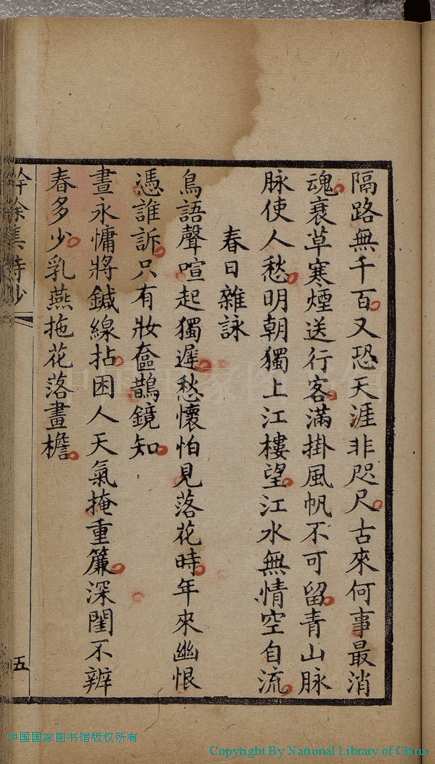 隔路無千百又恐天涯非咫尺古來何事最消
魂衰草寒煙送行客滿掛風帆不可留青山脉
脉使人愁明朝獨上江樓望江水無情空自流
春日雜詠
鳥語聲喧起獨遲愁懷怕見落花時年來幽恨
憑誰訴只有妝奩鵲鏡知
晝永慵將鍼線拈困人天氣掩重簾深閨不辨
春多少乳燕拖花落畫檐
餘集詩鈔
五
中国国家图书馆版权所有
Copyright By National Library of China